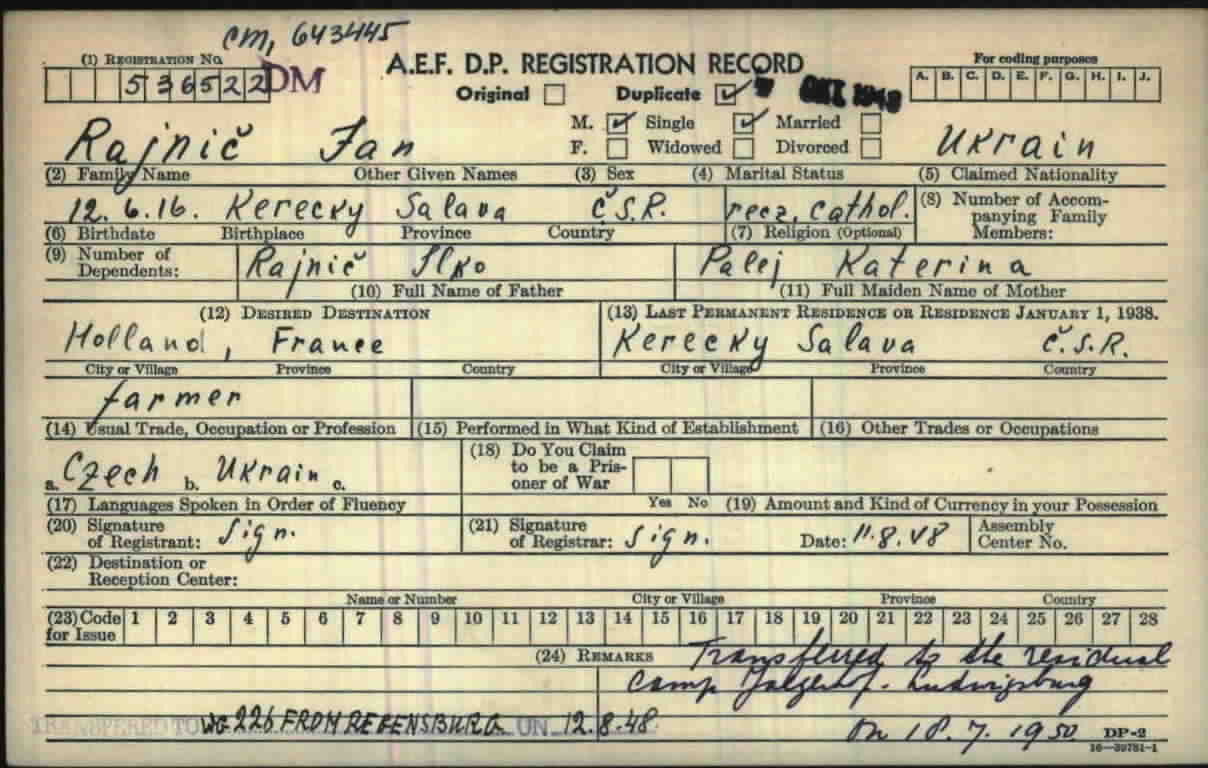 CM, 643445
(1) Registration No.
536522 DM
A.E.F. D.P. REGISTRATION RECORD
Original Duplicate ✓ 1948
For coding purposes
A. B. C. D. E. F. G. H. I. J.
M. ✓ Single ✓ Married
F. Widowed Divorced
Rajnič Jan Ukrain
(2) Family Name Other Given Names (3) Sex (4) Marital Status (5) Claimed Nationality
12.6.16. Kerecky Salava Č.S.R. cathol.
(6) Birthdate Birthplace Province Country (7) Religion (Optional) (8) Number of Accompanying Family Members:
(9) Number of Dependents: Rajnič Ilko Palej Katerina
(10) Full Name of Father (11) Full Maiden Name of Mother
(12) Desired Destination (13) Last Permanent Residence or Residence January 1, 1938.
Holland, France Kerecky Salava Č.S.R.
City or Village Province Country City or Village Province Country
farmer
(14) Usual Trade, Occupation or Profession (15) Performed in What Kind of Establishment (16) Other Trades or Occupations
a. Czech b. Ukrain c. (18) Do You Claim to be a Prisoner of War
(17) Languages Spoken in Order of Fluency Yes No (19) Amount and Kind of Currency in your Possession
(20) Signature of Registrant: Sign. (21) Signature of Registrar: Sign. Date: 11.8.48 Assembly Center No.
(22) Destination or Reception Center:
Name or Number City or Village Province Country
(23) Code for Issue 1 2 3 4 5 6 7 8 9 10 11 12 13 14 15 16 17 18 19 20 21 22 23 24 25 26 27 28
(24) Remarks Transferred to the residual
Camp Ludwigsburg
TRANSFERED TO WG 226 FROM REGENSBURG UN 12.8.48
on 18.7.1950 DP-2
16-39781-1